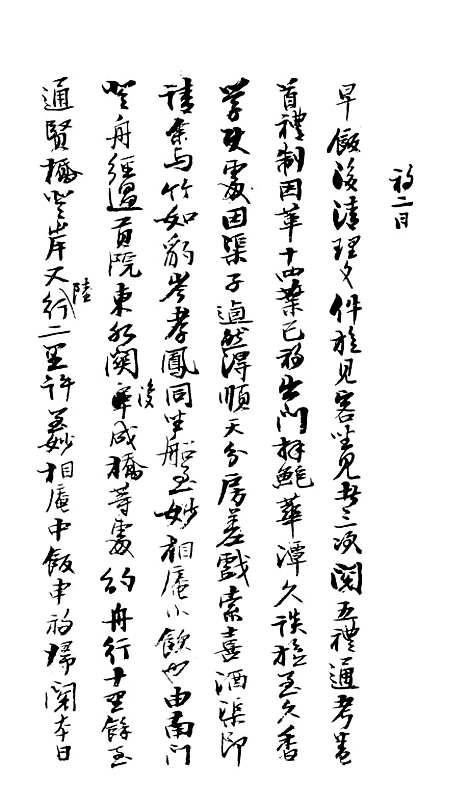 初二日
早飯後清理文件旋見客坐見者三次閱五禮通考卷
首禮制因革十四葉已初出門拜鮑華潭久談旋至久香
学使處因渠子適然得順天分房差戲索喜酒渠即
請余与竹如豹岑孝鳳同坐船至妙相庵小飲也由南門
登舟經過貢院東水關後成橋等處約舟行十里餘至
通賢橋登岸又陸行二里許妙相庵中飯申初歸閱本日